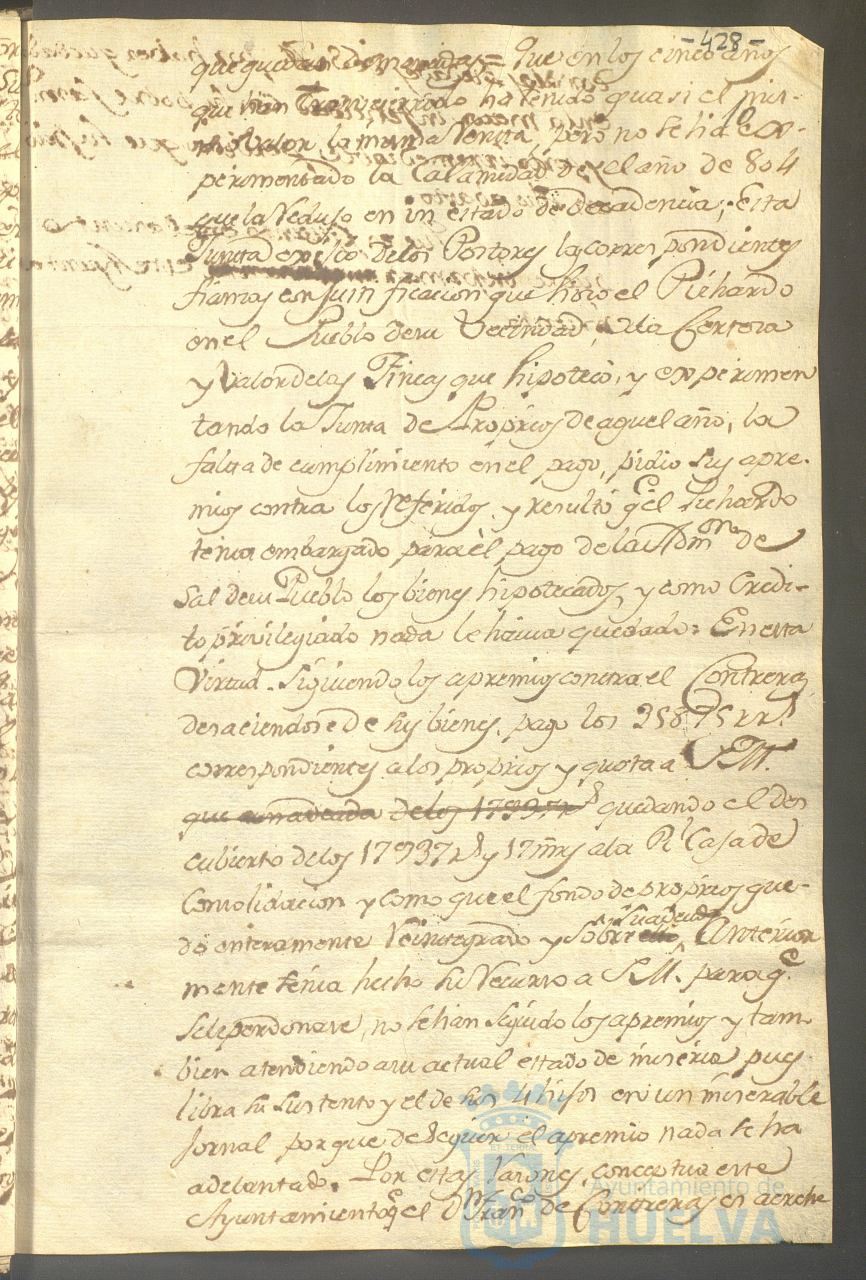 -428-
que quedan demandas = Que en los cinco años
que han Transcurrido ha tenido quasi el mis-
mo Valor la misma Venta, pero no se ha ex-
perimentado la Calamidad de el año de 804
que la Reduso en un estado de decadencia; Esta
Junta exisio de los Postores las correspondientes
fianzas con justificacion que hiso el Pichardo
en el Pueblo de su Vecindad, de la Certeza
y Valor de las Fincas que hipotecó, y experimen
tando la Junta de Proprios de aquel año, la
falta de cumplimiento en el pago, pidio sus apre-
mios contra los Referidos, y resultó qe el Pichardo
tenia embargado para el pago de la Admon de
Sal de su Pueblo los bienes hipotecados, y como Credi-
to privilegiado nada le havia quedado: En esta
Virtud. Siguiendo los apremios contra el Contreras
desaciendose de sus bienes, pago los 25875 rrs
correspondientes a los proprios y quota a S.M.
que de los 17937 rs quedando el des
cubierto de los 17937 rs y 17 mrs a la Rl Casa de
Consolidacion y como que el fondo de proprios que-
dó enteramente Reintegrado y sobre Anterior
mente tenia hecho su Recurso a S.M. para qe
se le perdonase, no se han seguido los apremios y tam
bien atendiendo a su actual estado de miseria pues
libra su sustento y el de sus 4 hijos en un miserable
Jornal porque de seguir el apremio nada se ha
adelantado. Por estas rasones, conceptua este
Ayuntamiento qe el Dn Franco de Contreras es acrehe
Ayuntamiento de
HUELVA